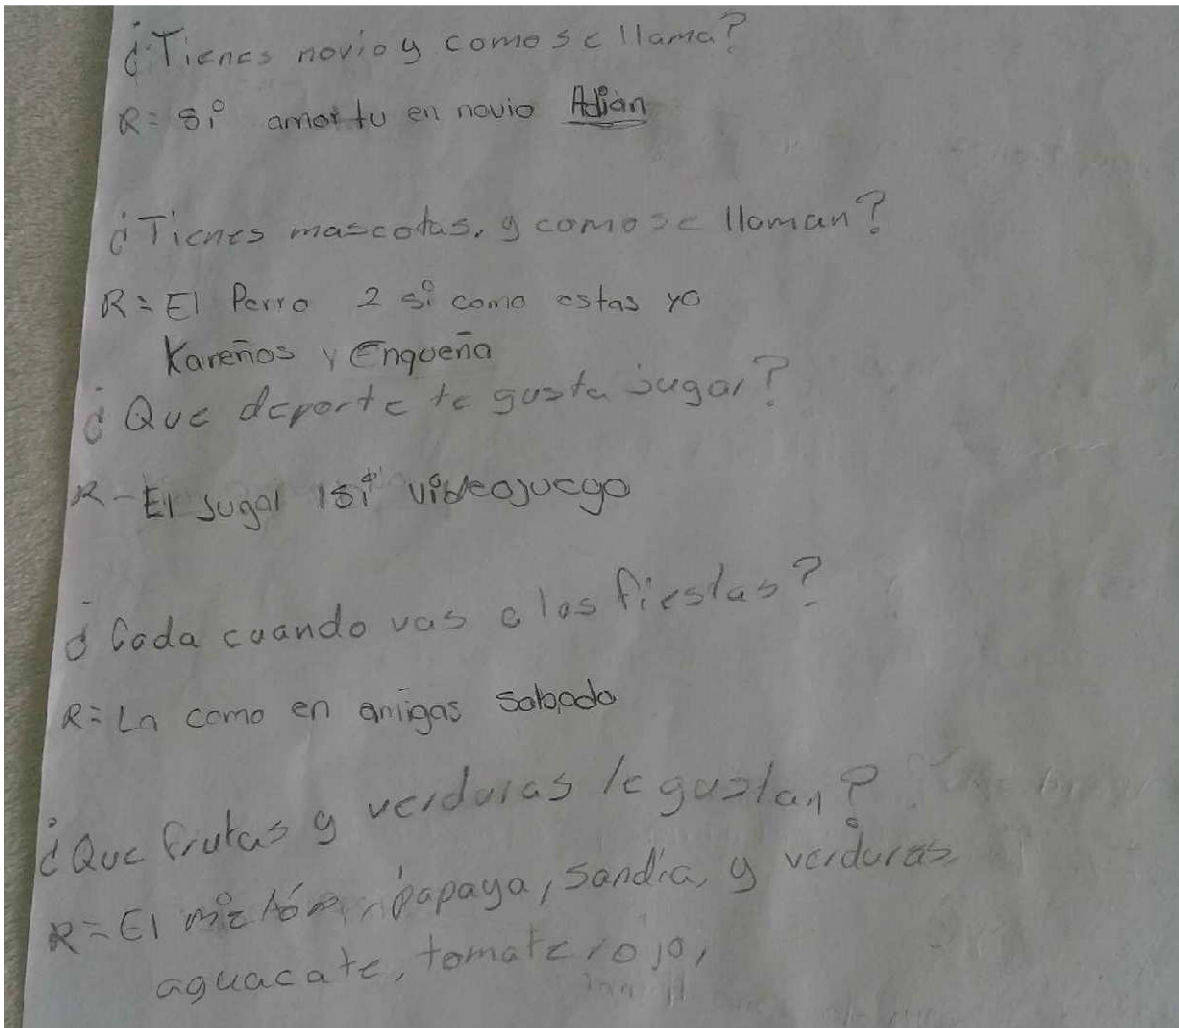 ¿Tienes novio y como se llama?
R= Si amor tu en novio Adián
¿Tienes mascotas, y como se llaman?
R= El Perro 2 si como estas yo
Kareños y Enqueña
¿Que deporte te gusta jugar?
R- El Jugal 1 si videojuego
¿Cada cuando vas a las fiestas?
R= Ln como en amigas sabado
¿Que frutas y verduras te gustan?
R= El papaya, sandía, y verduras
aguacate, tomate rojo,